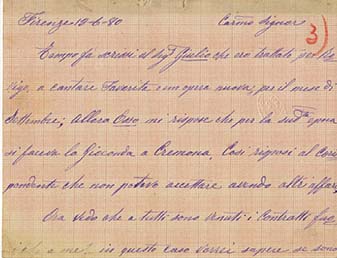 Firenze 12-6-80 Carmo Signor
3)
Tempo fa scrissi al Sigr Giulio che ero trattato per Ro
vigo, a cantare Favorita e un opera nuova; per il mese di
Settembre; Allora Esso mi rispose che per la sudta epoca
si faceva la Gioconda a Cremona. Così risposi al Corris
pondente che non potevo accettare avendo altri affari.
Ora vedo che a tutti sono venuti i Contratti fuo
a me. in questo caso vorrei sapere se sono